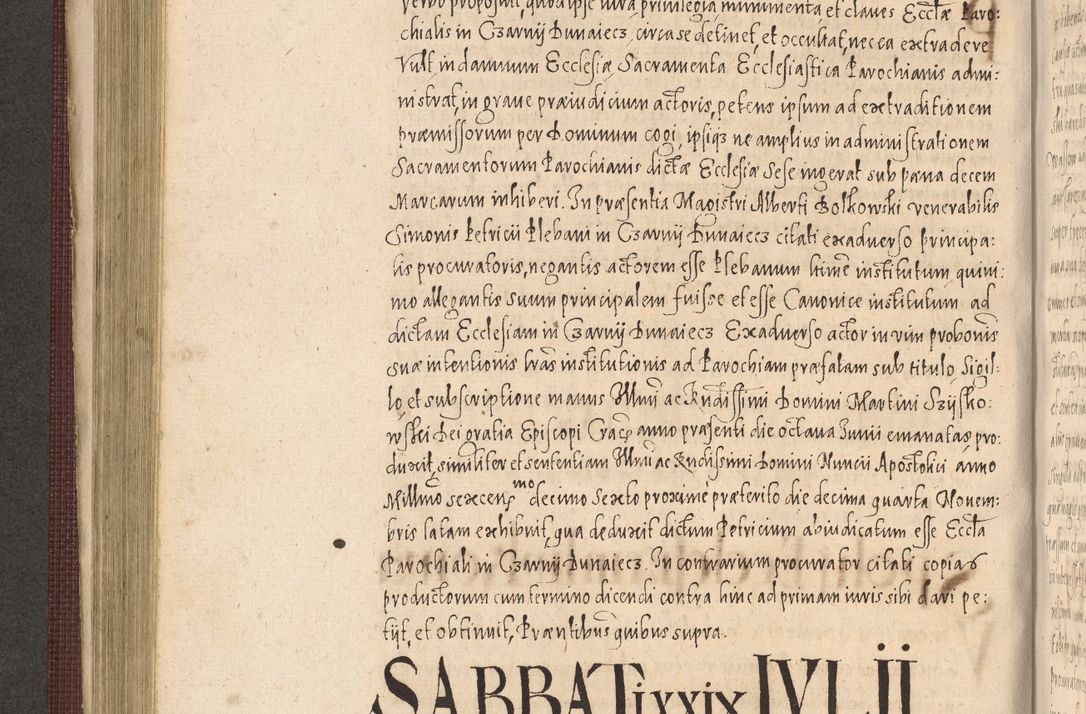 verbo proposuit, quod ipse iura privilegia, munimenta et claves Eccłæ Paro:
chialis in Czarnÿ Dunaiecz, circa se detinet, et occultat, nec ea extradere
Vult, in damnum Ecclesiæ, Sacramenta Ecclesiastica Parochianis admi:
nistrat, in graue præiudicium actoris, petens ipsum ad extraditionem
præmissorum per Dominum cogi, ipsiqʒ ne amplius in administrationem
Sacramentorum Parochianis dictæ Ecclesiæ sese ingerat sub pæna decem
Marcarum inhiberi. In præsentia Magistri Alberti Bolkowski venerabilis
Simonis Petricii Plebani in Czarnÿ Dunaiecz citati exaduerso principa:
lis procuratoris, negantis actorem esse Plebanum hinc institutum, quini:
mo allegantis suum principalem fuisse et esse Canonice institutum ad
dictam Ecclesiam in Czarnÿ Dunaiecz Exaduerso actor in vim probonis
suæ intentionis lras institutionis ad Parochiam præfatam sub titulo, Sigil:
lo, et subscriptione manus Illmi ac Rndissimi Domini Martini Szÿsko:
wski Dei gratia Episcopi Crac anno præsenti die octaua Iunii emanatas pro:
duxit, similiter et sententiam Illmi ac Rndissimi Domini Nuncii Apostolici anno
Millmo sexcenmo decimo sexto proxime præterito die decima quarta Nouem:
bris latam exhibuit, qua deduxit dictum Petricium abiudicatum esse Eccła
Parochiali in Czarnÿ Dunaiecz. In contrarium procurator citati copias
productorum cum termino dicendi contra hinc ad primam iuris sibi dari pe:
tÿt, et obtinuit, Præntibus quibus supra.
SABBATi XXIX IVLII